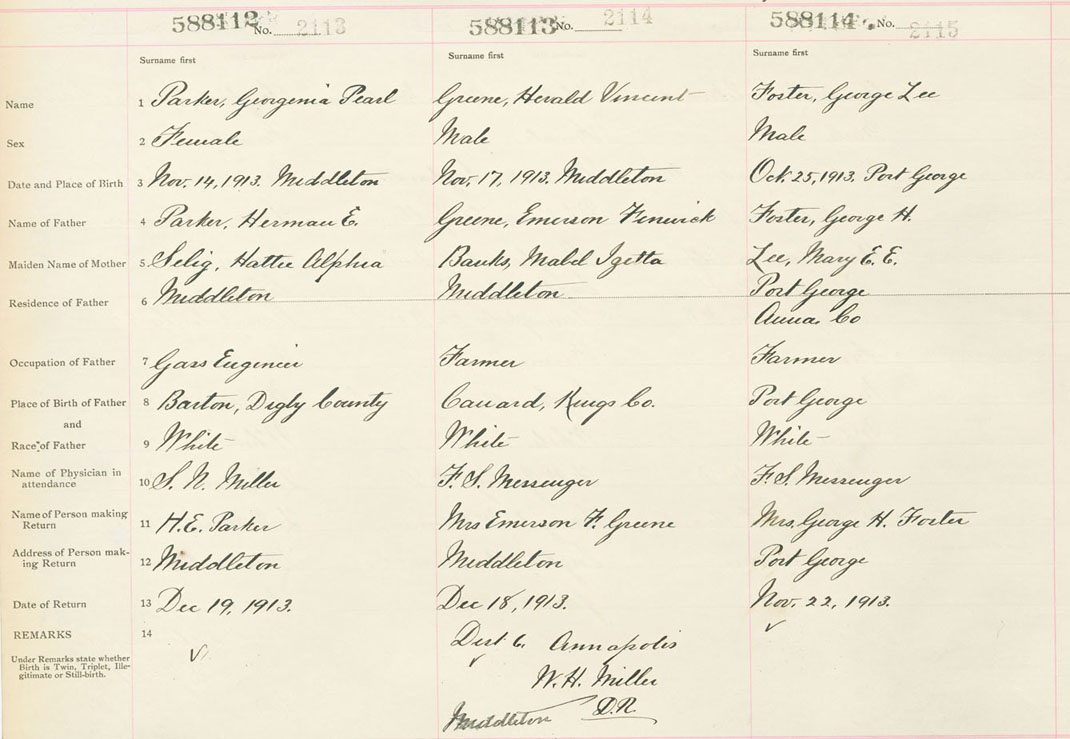 588112 No. 2113 588113 No. 2114 588114 No. 2115
Surname first Surname first Surname first
Name 1 Parker, Georgenia Pearl Greene, Herald Vincent Foster, George Lee
Sex 2 Female Male Male
Date and Place of Birth 3 Nov. 14, 1913. Middleton Nov. 17, 1913. Middleton Oct. 25, 1913. Port George
Name of Father 4 Parker, Herman E. Greene, Emerson Fenwick Foster, George H.
Maiden Name of Mother 5 Selig, Hattie Alphia Banks, Mabel Izetta Lee, Mary E. E.
Residence of Father 6 Middleton Middleton Port George
Anna. Co
Occupation of Father 7 Gass Engineer Farmer Farmer
Place of Birth of Father 8 Barton, Digby County Canard, Kings Co. Port George
and
Race of Father 9 White White White
Name of Physician in
attendance 10 S. N. Miller F. S. Messenger F. S. Messenger
Name of Person making
Return 11 H. E. Parker Mrs Emerson F. Greene Mrs. George H. Foster
Address of Person mak-
ing Return 12 Middleton Middleton Port George
Date of Return 13 Dec 19, 1913. Dec 18, 1913. Nov. 22, 1913.
REMARKS 14 Dist 6. Annapolis
Under Remarks state whether
Birth is Twin, Triplet, Ille-
gitimate or Still-birth.
W. H. Miller
Middleton D.R.